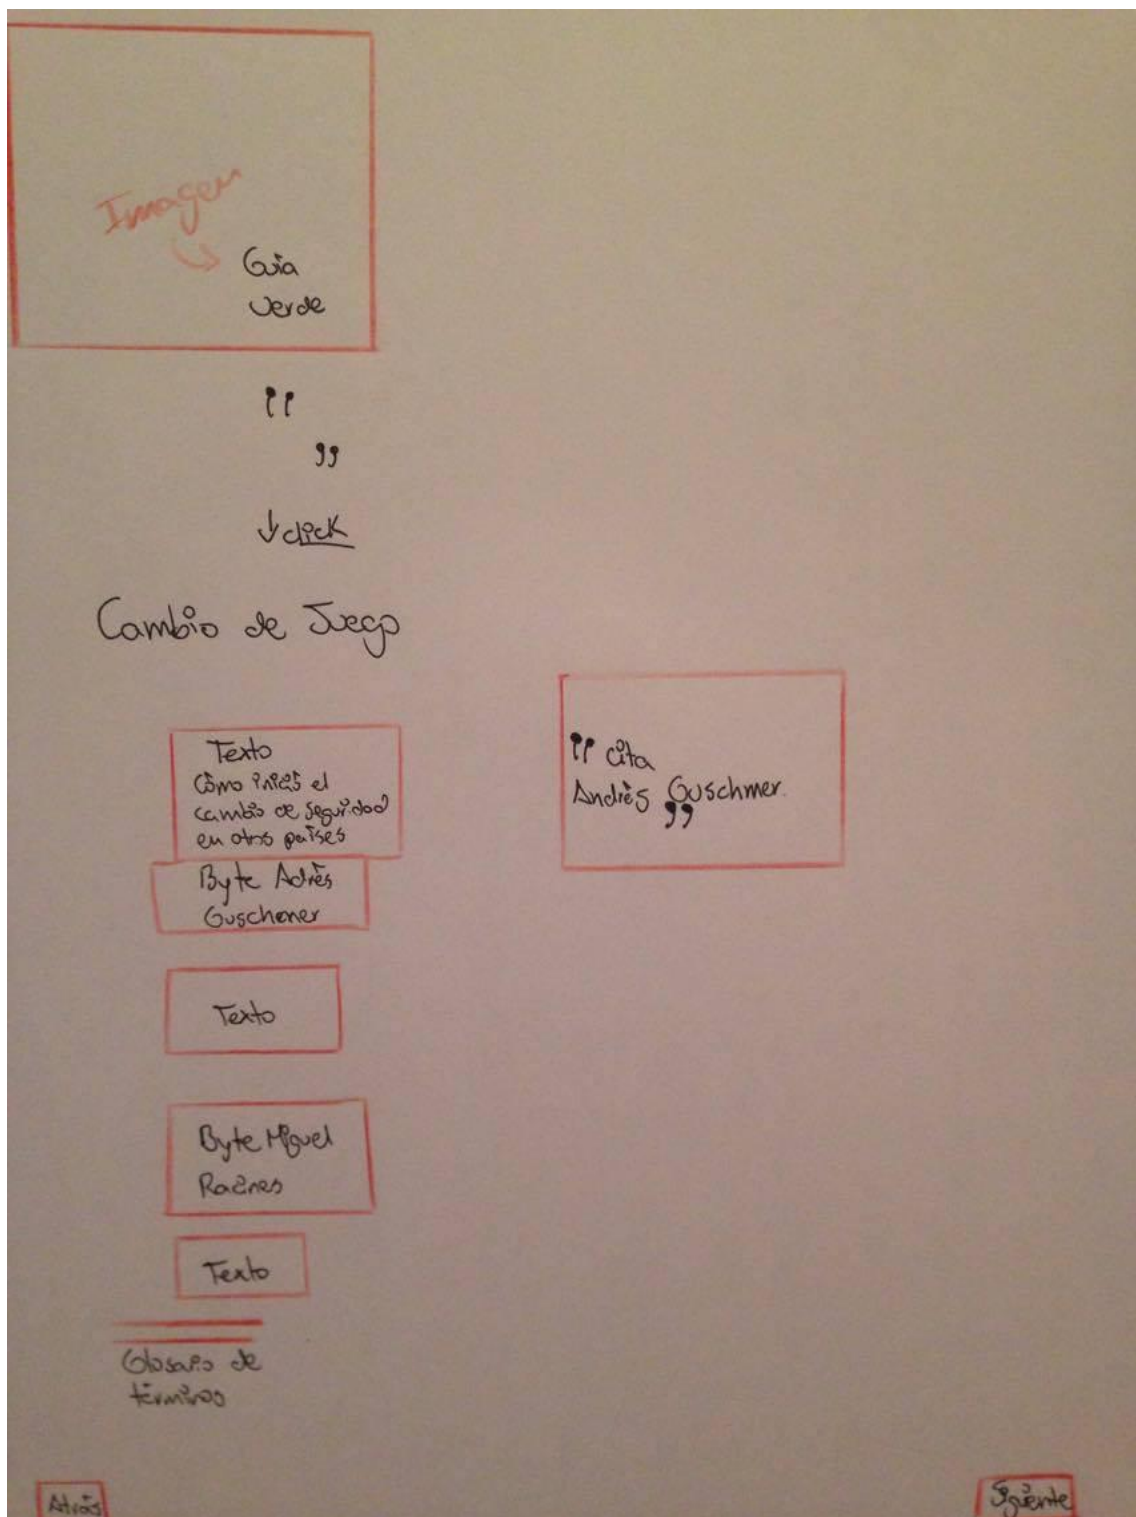 Imagen
Guia
Verde
"
"
↓ click
Cambio de Juego
Texto
Cómo inició el
cambio de seguridad
en otros países
Byte Adrès
Guschener
Texto
Byte Miguel
Racines
Texto
Glosario de
términos
" cita
Andrès Guschmer.
"
Atrás
Siguiente